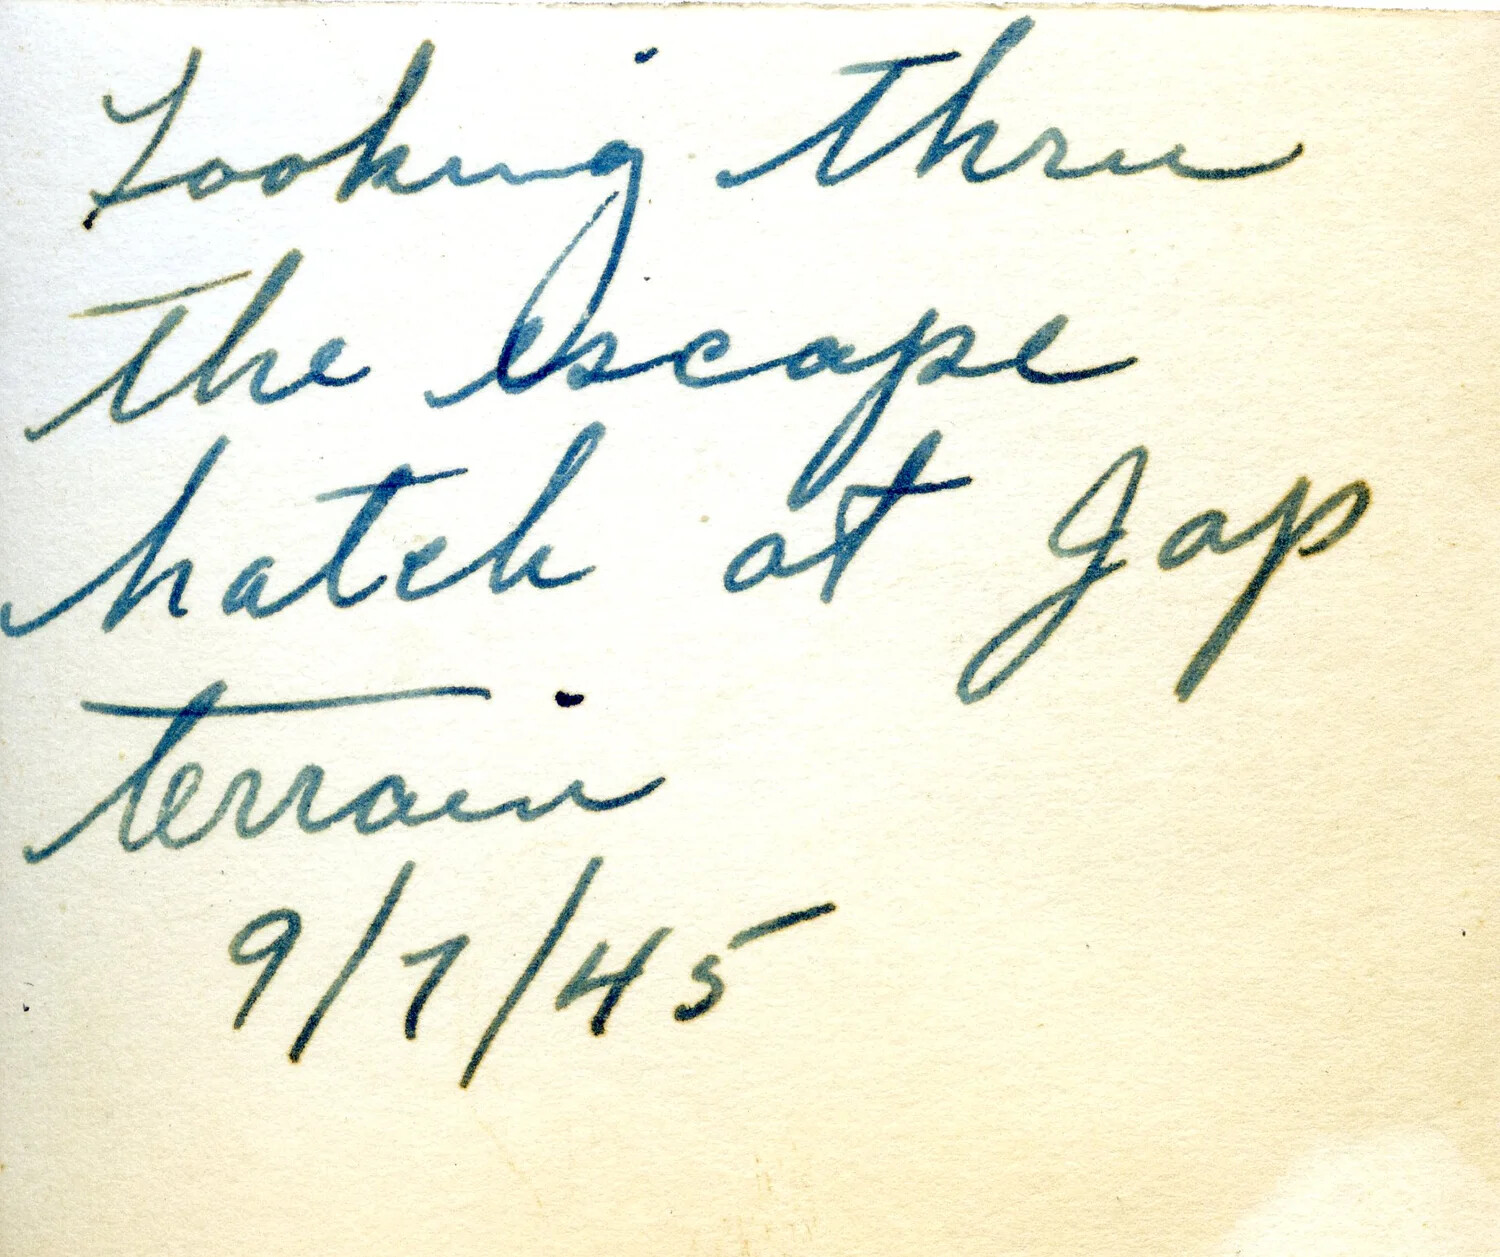 Looking thru
the escape
hatch at Jap
terrain
9/7/45